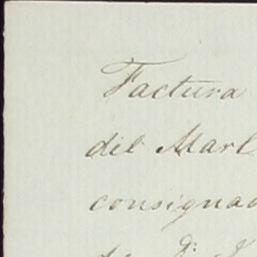 Factura
del Marl
consignad